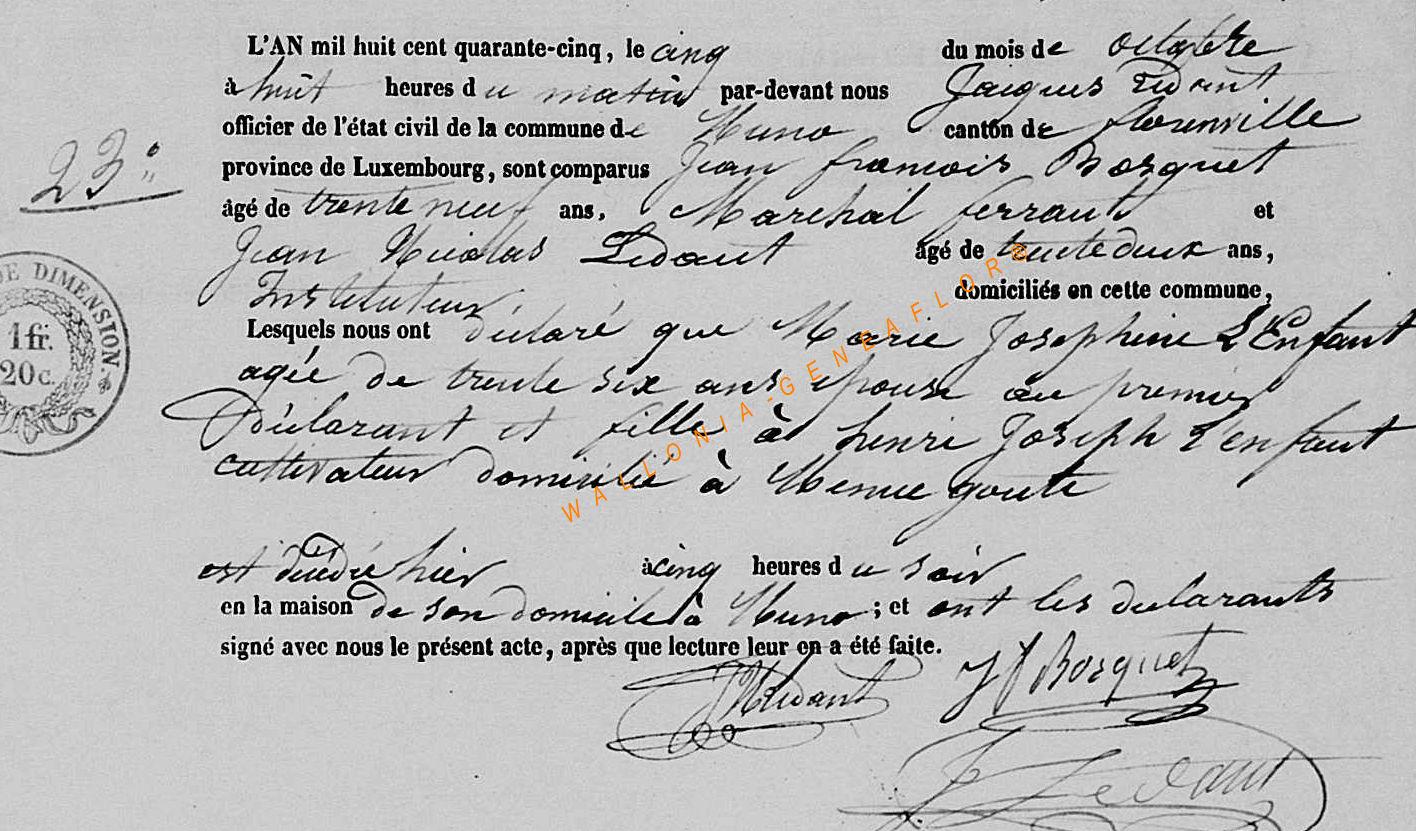 L'AN mil huit cent quarante-cinq, le cinq du mois de octobre
à huit heures du matin par-devant nous Jacques Lidant
officier de l'état civil de la commune de Muno canton de florenville
province de Luxembourg, sont comparus Jean francois Bosquet
âgé de trente neuf ans, Marchal ferrant et
Jean Nicolas Lidant âgé de trente deux ans,
Instituteur domiciliés en cette commune,
Lesquels nous ont déclaré que Marie Josephine L'Enfant
agée de trente six ans épouse au premier
Déclarant et fille à henri Joseph L'enfant
cultivateur domicilié à Menue goute
est décédé hier à cinq heures du soir
en la maison de son domicile à Muno ; et ont les declarants
signé avec nous le présent acte, après que lecture leur en a été faite.
23°
DE DIMENSION.
1 fr.
20 c.
WALLONIA-GENEAFLORE
JNLidant Jf Bosquet
J Ledant